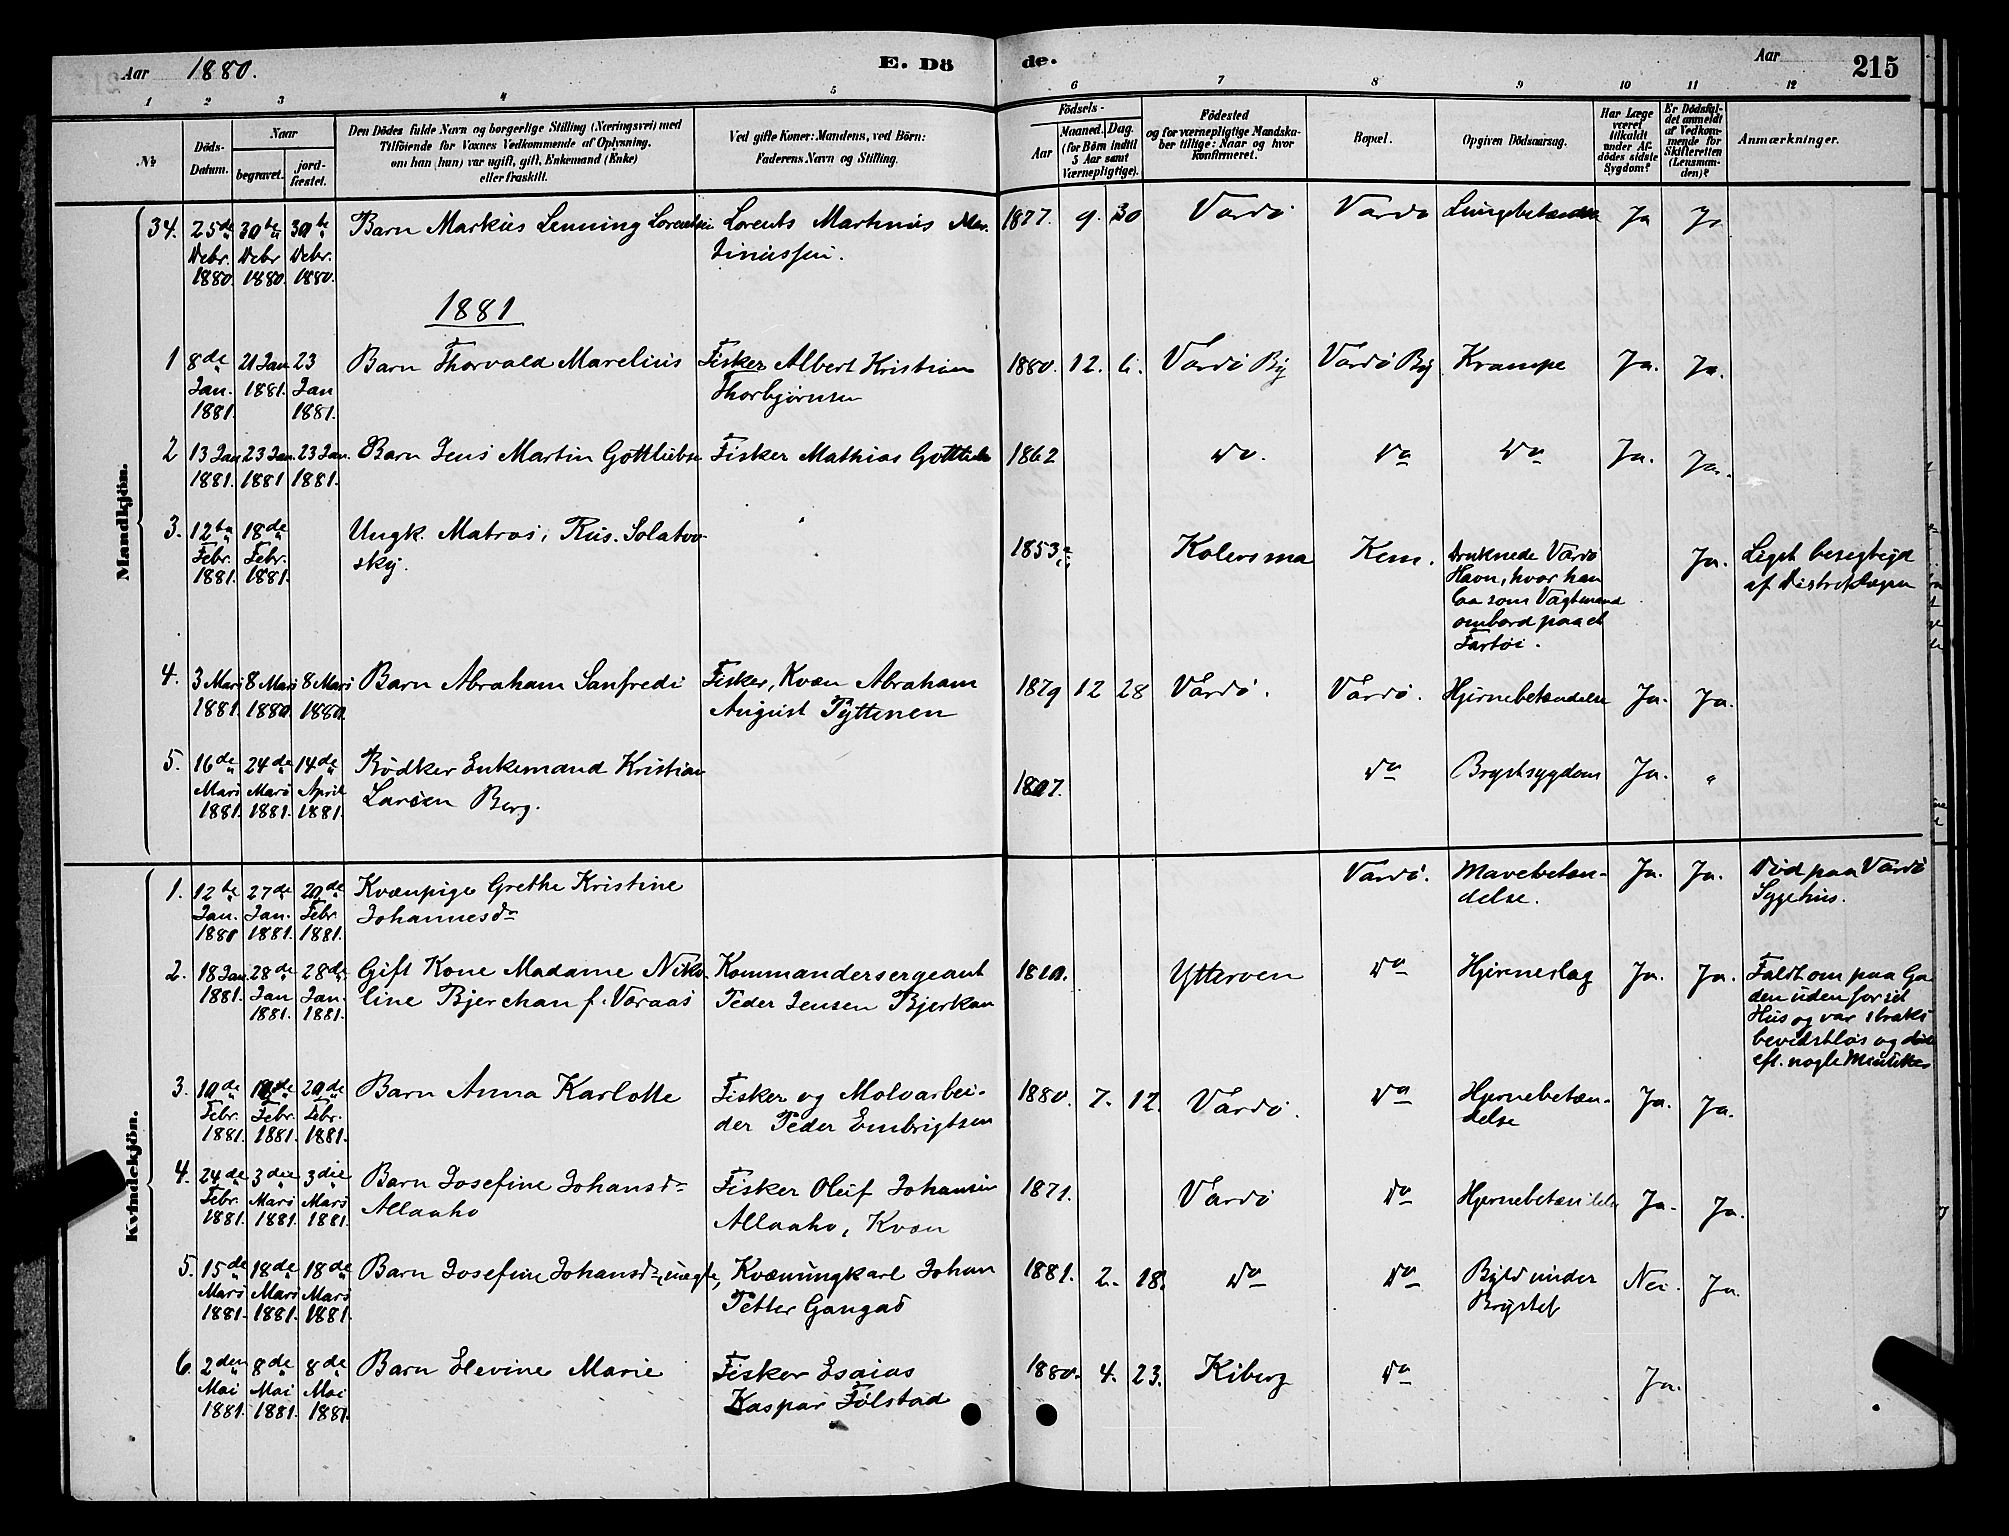 Aar 1880.
E. Dö de.
Aar
215
1 2 3 4 5 6 7 8 9 10 11 12
№
Döds-
Datum.
Naar
begravet.
jord-
fæstet.
Den Dödes fulde Navn og borgerlige Stilling (Næringsvei) med
Tilföiende for Voxnes Vedkommende af Oplysning,
om han (hun) var ugift, gift, Enkemand (Enke)
eller fraskilt.
Ved gifte Koner: Mandens, ved Börn:
Faderens Navn og Stilling.
Födsels-
Aar
Maaned. Dag.
(for Börn indtil
5 Aar samt
Værnepligtige).
Födested
og for værnepligtige Mandska-
ber tillige: Naar og hvor
konfirmeret.
Bopæl.
Opgiven Dödsaarsag.
Har Læge
været
tilkaldt
under Af-
dödes sidste
Sygdom?
Er Dödsfal-
det anmeldt
af Vedkom-
mende for
Skifteretten
(Lensman-
den)?
Anmærkninger.
Mandkjön.
34. 25de 30te 30te Barn Markus Lenning Lorentsen Lorents Martinus Mar- 1877. 9. 30 Vardö Vardö Lungebetændelse Ja Ja
Debr. Debr Debr. tinussen.
1880. 1880. 1880.
1881
1 8de 21 Jan 23 Barn Thorvald Marelius Fisker Albert Kristian 1880. 12. 6. Vardö By Vardö By Krampe Ja. Ja.
Jan. 1881. Jan Thorbjørnsen
1881. 1881.
2 13 Jan 23 Jan. 23 Jan. Barn Jens Martin Gottliebsen Fisker Mathias Gottlieb 1862 do. do do Ja. Ja.
1881. 1881 1881.
3. 12te 18de Ungk. Matros, Rus. Solatov- 1853 Kolersma Kem. Druknede Vardö Ja. Liget besigtigd
Febr. Febr. sky. Havn, hvor han af Distriktslægen
1881. 1881. laa som Vagtmand
ombord paa et
Fartøi.
4. 3 Mars 8 Mars 8 Mars Barn Abraham Sanfredi Fisker, Kvæn Abraham 1879 12 28 Vardö. Vardö. Hjernebetændelse Ja. Ja.
1881. 1880. 1880. August Pyttinen
5. 16de 24de 14de Bødker Enkemand Kristian 1807. do Brystsygdom Ja. "
Mars Mars April Larsen Berg.
1881. 1881. 1881.
Kvindekjön.
1. 12te 27de 20de Kvænpige Grethe Kristine Vardö. Mavebetæn- Ja. Ja. Død paa Vardö
Jan. Jan. Febr. Johannesdr delse. Sygehus.
1880 1881. 1881.
2. 18 Jan. 28de 28de Gift Kone Madame Niko- Kommandersergeant Ytterøen do Hjerneslag Ja. Ja. Faldt om paa Ga-
1881. Jan Jan. line Bjerchan f. Væraas Peder Jensen Bjerkan den uden for sit
1881. 1881. Hus og var straks
bevidstløs og døde
eft. nogle Minutter
3. 10de de 20de Barn Anna Karlotte Fisker og Molvarbei- 1880. 7. 12. Vardö. do Hjernebetæn- Ja. Ja.
Febr. Febr. Febr. der Peder Embrigtsen delse
1881. 1881. 1881.
4. 24de 3die 3die Barn Josefine Johansdr Fisker Oluf Johansen 1871. Vardö do Hjernebetændelse Ja. Ja.
Febr. Mars Mars Allaaho Allaaho, Kvæn
1881. 1881. 1881.
5. 15de 18de 18de Barn Josefine Johansdr, uægte, Kvænungkarl Johan 1881. 2. 18. do do Byld under Nei. Ja.
Mars Mars Mars Petter Gangas Brystet
1881. 1881. 1881.
6. 2den 8de 8de Barn Hevine Marie Fisker Esaias 1880. 4. 23. Kiberg do Ja.
Mai Mai Mai Kaspar Følstad
1881. 1881. 1881.